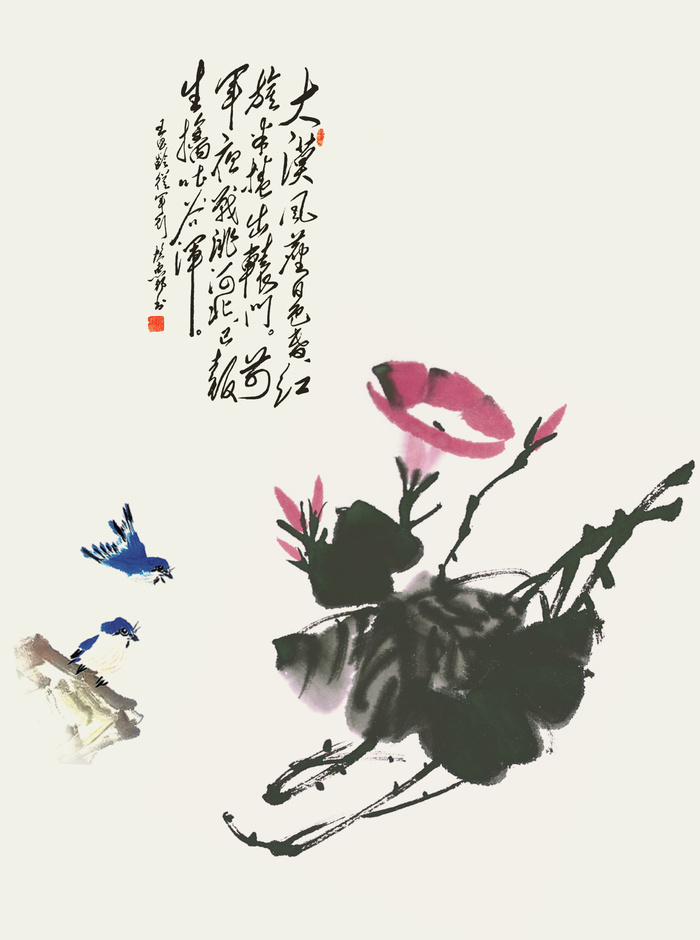 大漠风尘日色昏红
旗半捲出轅门。前
军夜战洮河北已報
生擒吐谷渾。
王昌龄從军行